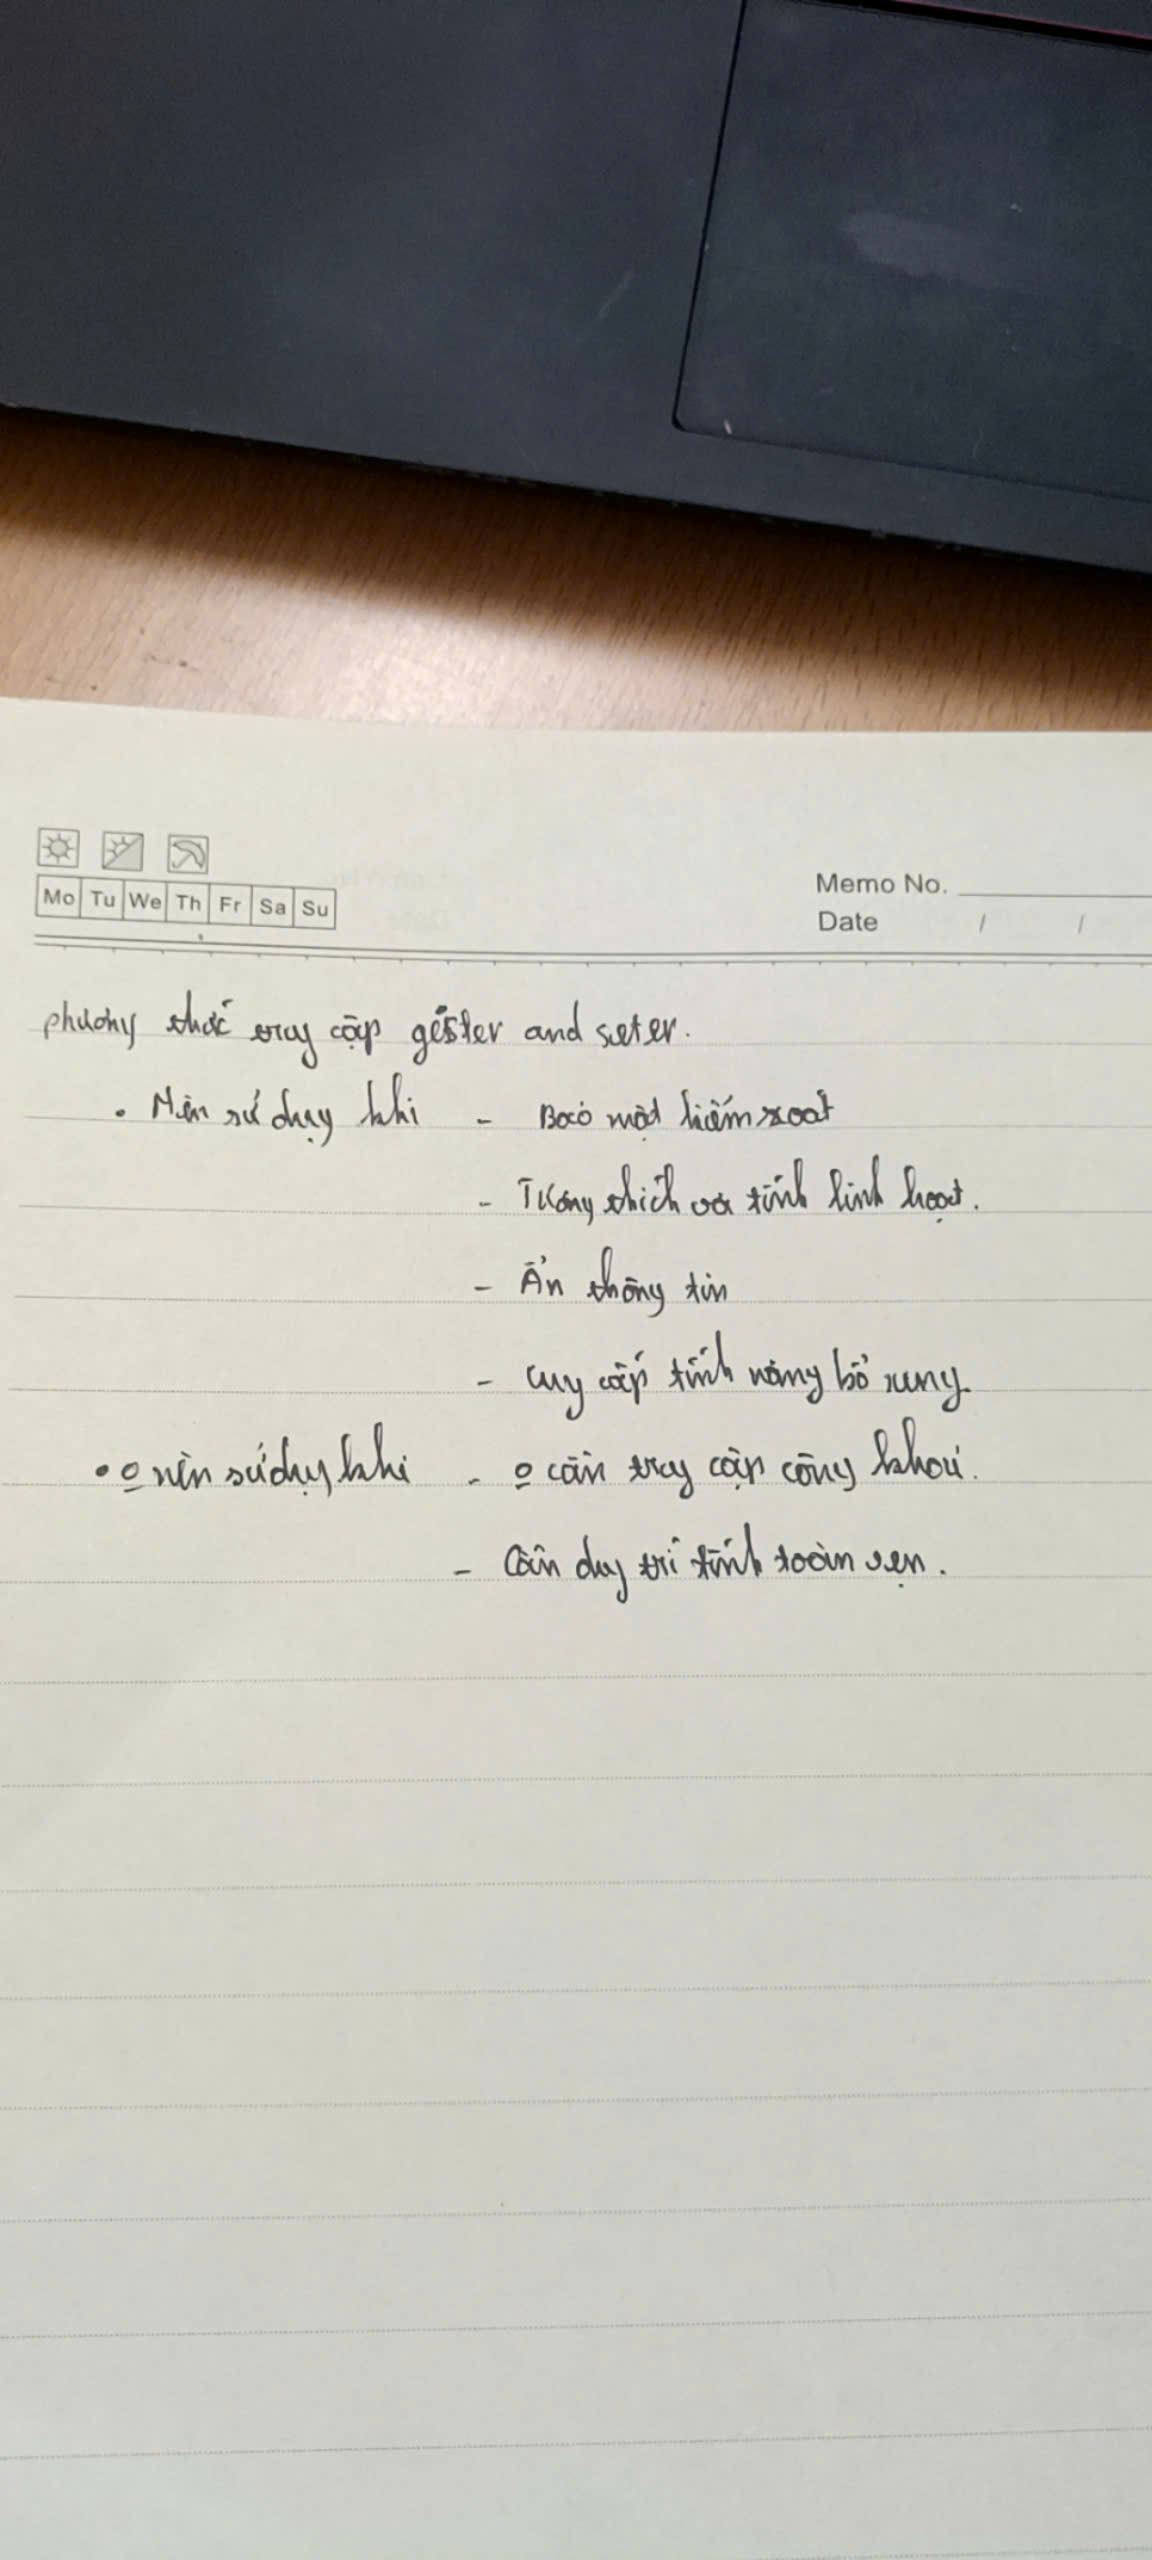 Mo Tu We Th Fr Sa Su
Memo No.
Date / /
phương thức truy cập getter and seter.
• Nên sử dụng khi - Bảo mật kiểm xoát
- Tương thích và tính linh hoạt.
- Ẩn thông tin
- cung cấp tính năng bổ xung.
• o nên sử dụng khi - o cần truy cập công khai.
- Cần duy trì tính toàn vẹn.